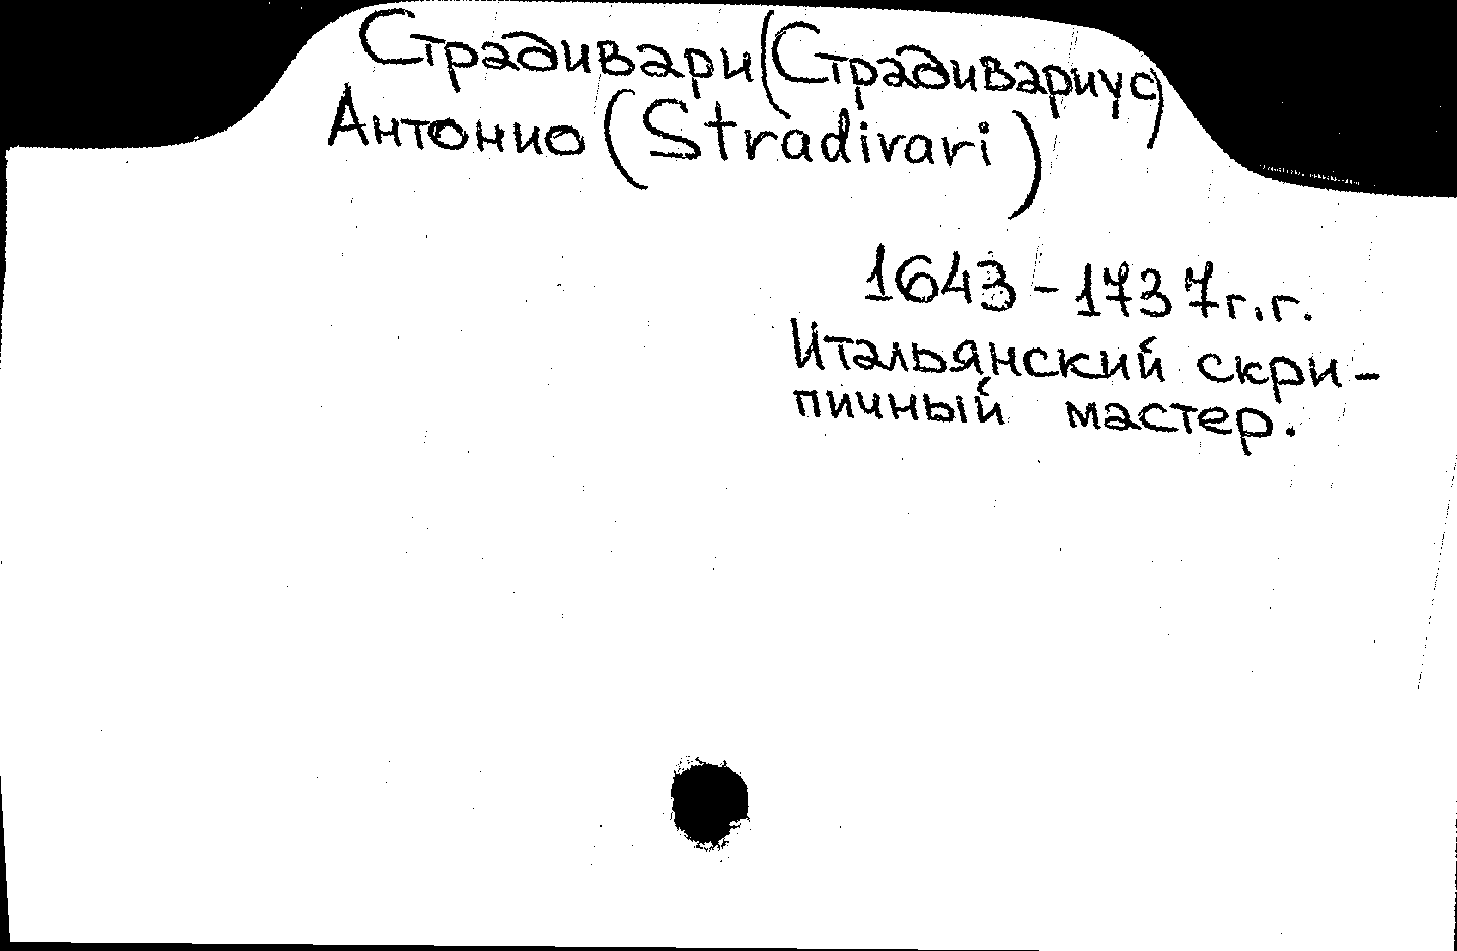 Страдивари (Страдивариус)
Антонио (Stradivari)
1643 - 1737 г.г.
Итальянский скри-
пичный мастер.